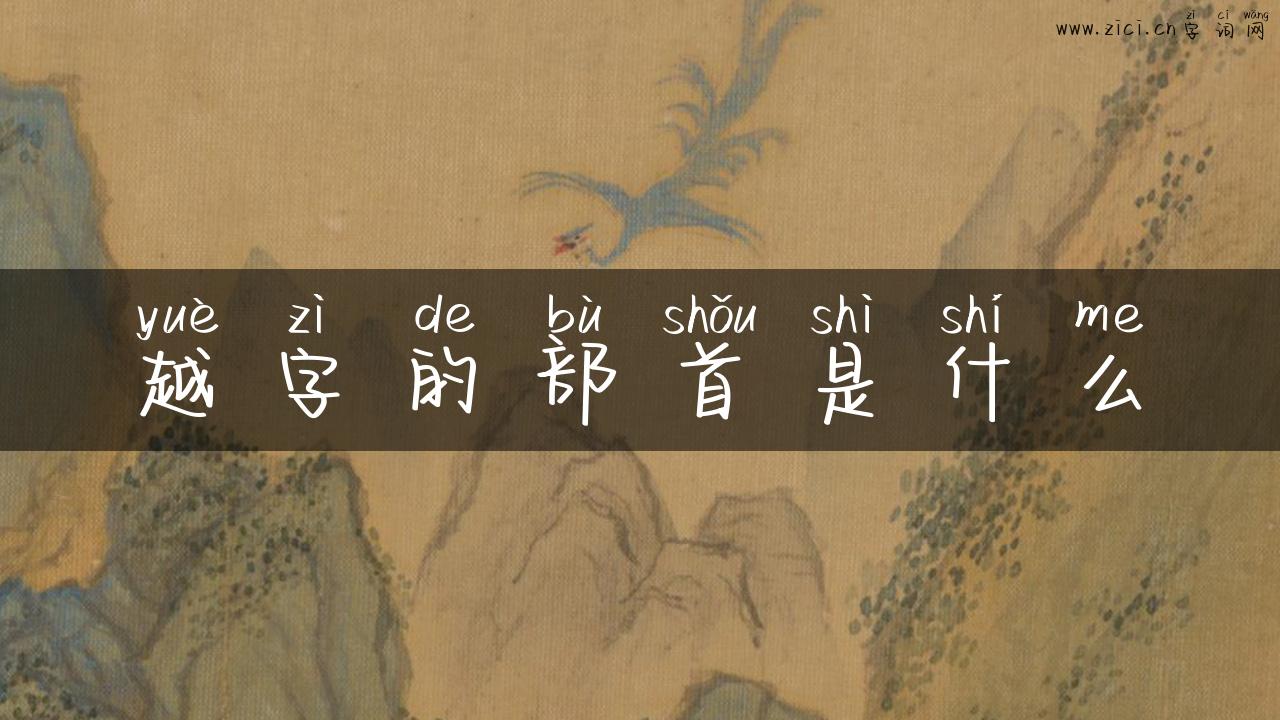 zì cí wǎng
www.zici.cn字词网
yuè zì de bù shǒu shì shí me
越字的部首是什么